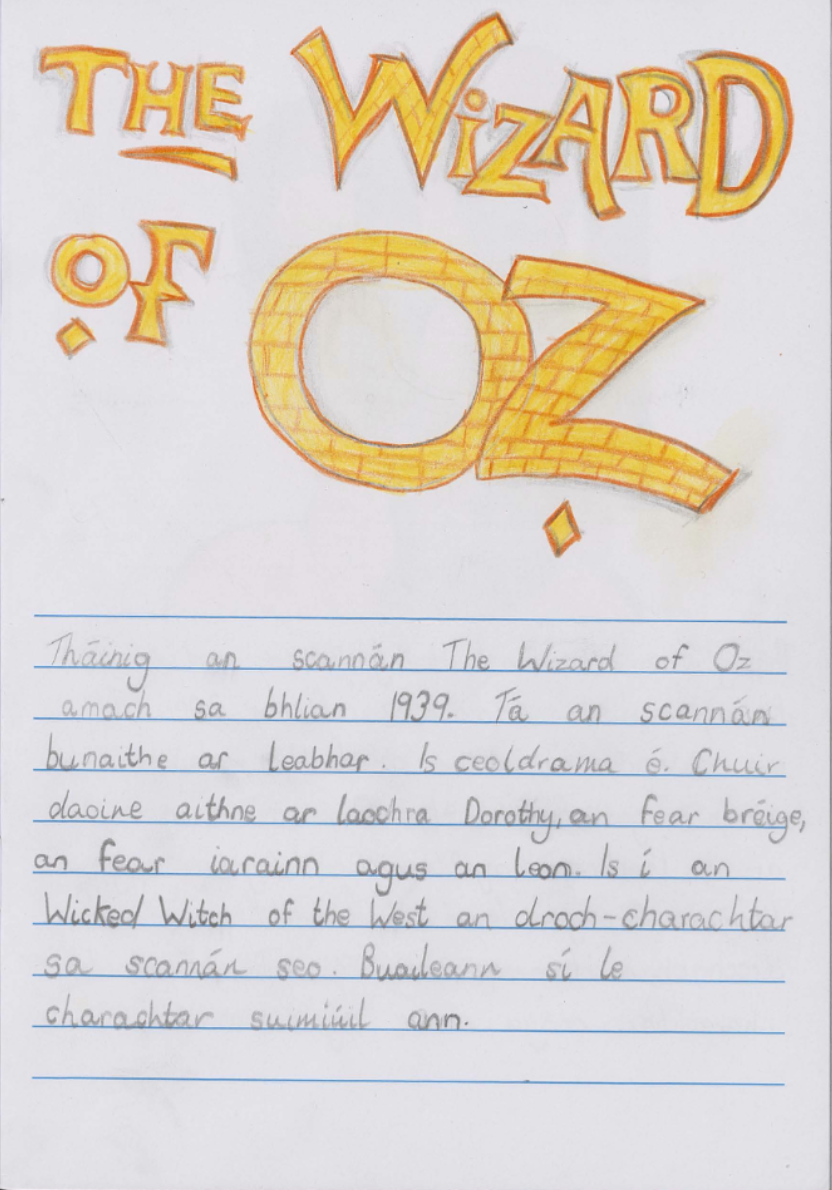 THE WIZARD
OF OZ
Tháinig an scannán The Wizard of Oz
amach sa bhlian 1939. Tá an scannán
bunaithe ar leabhar. Is ceoldrama é. Chuir
daoine aithne ar laochra Dorothy, an fear bréige,
an fear iarainn agus an leon. Is í an
Wicked Witch of the West an droch-charachtar
sa scannán seo. Buaileann sí le
charachtar suimiúil ann.